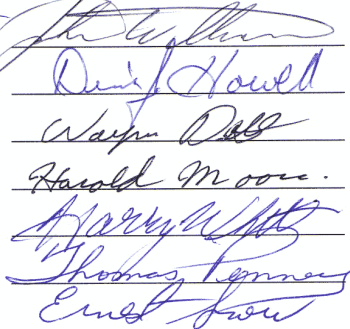 John Williams
Howell
Wayne
Harold Moore.
Harry
Thomas Penney
Ernest Snow